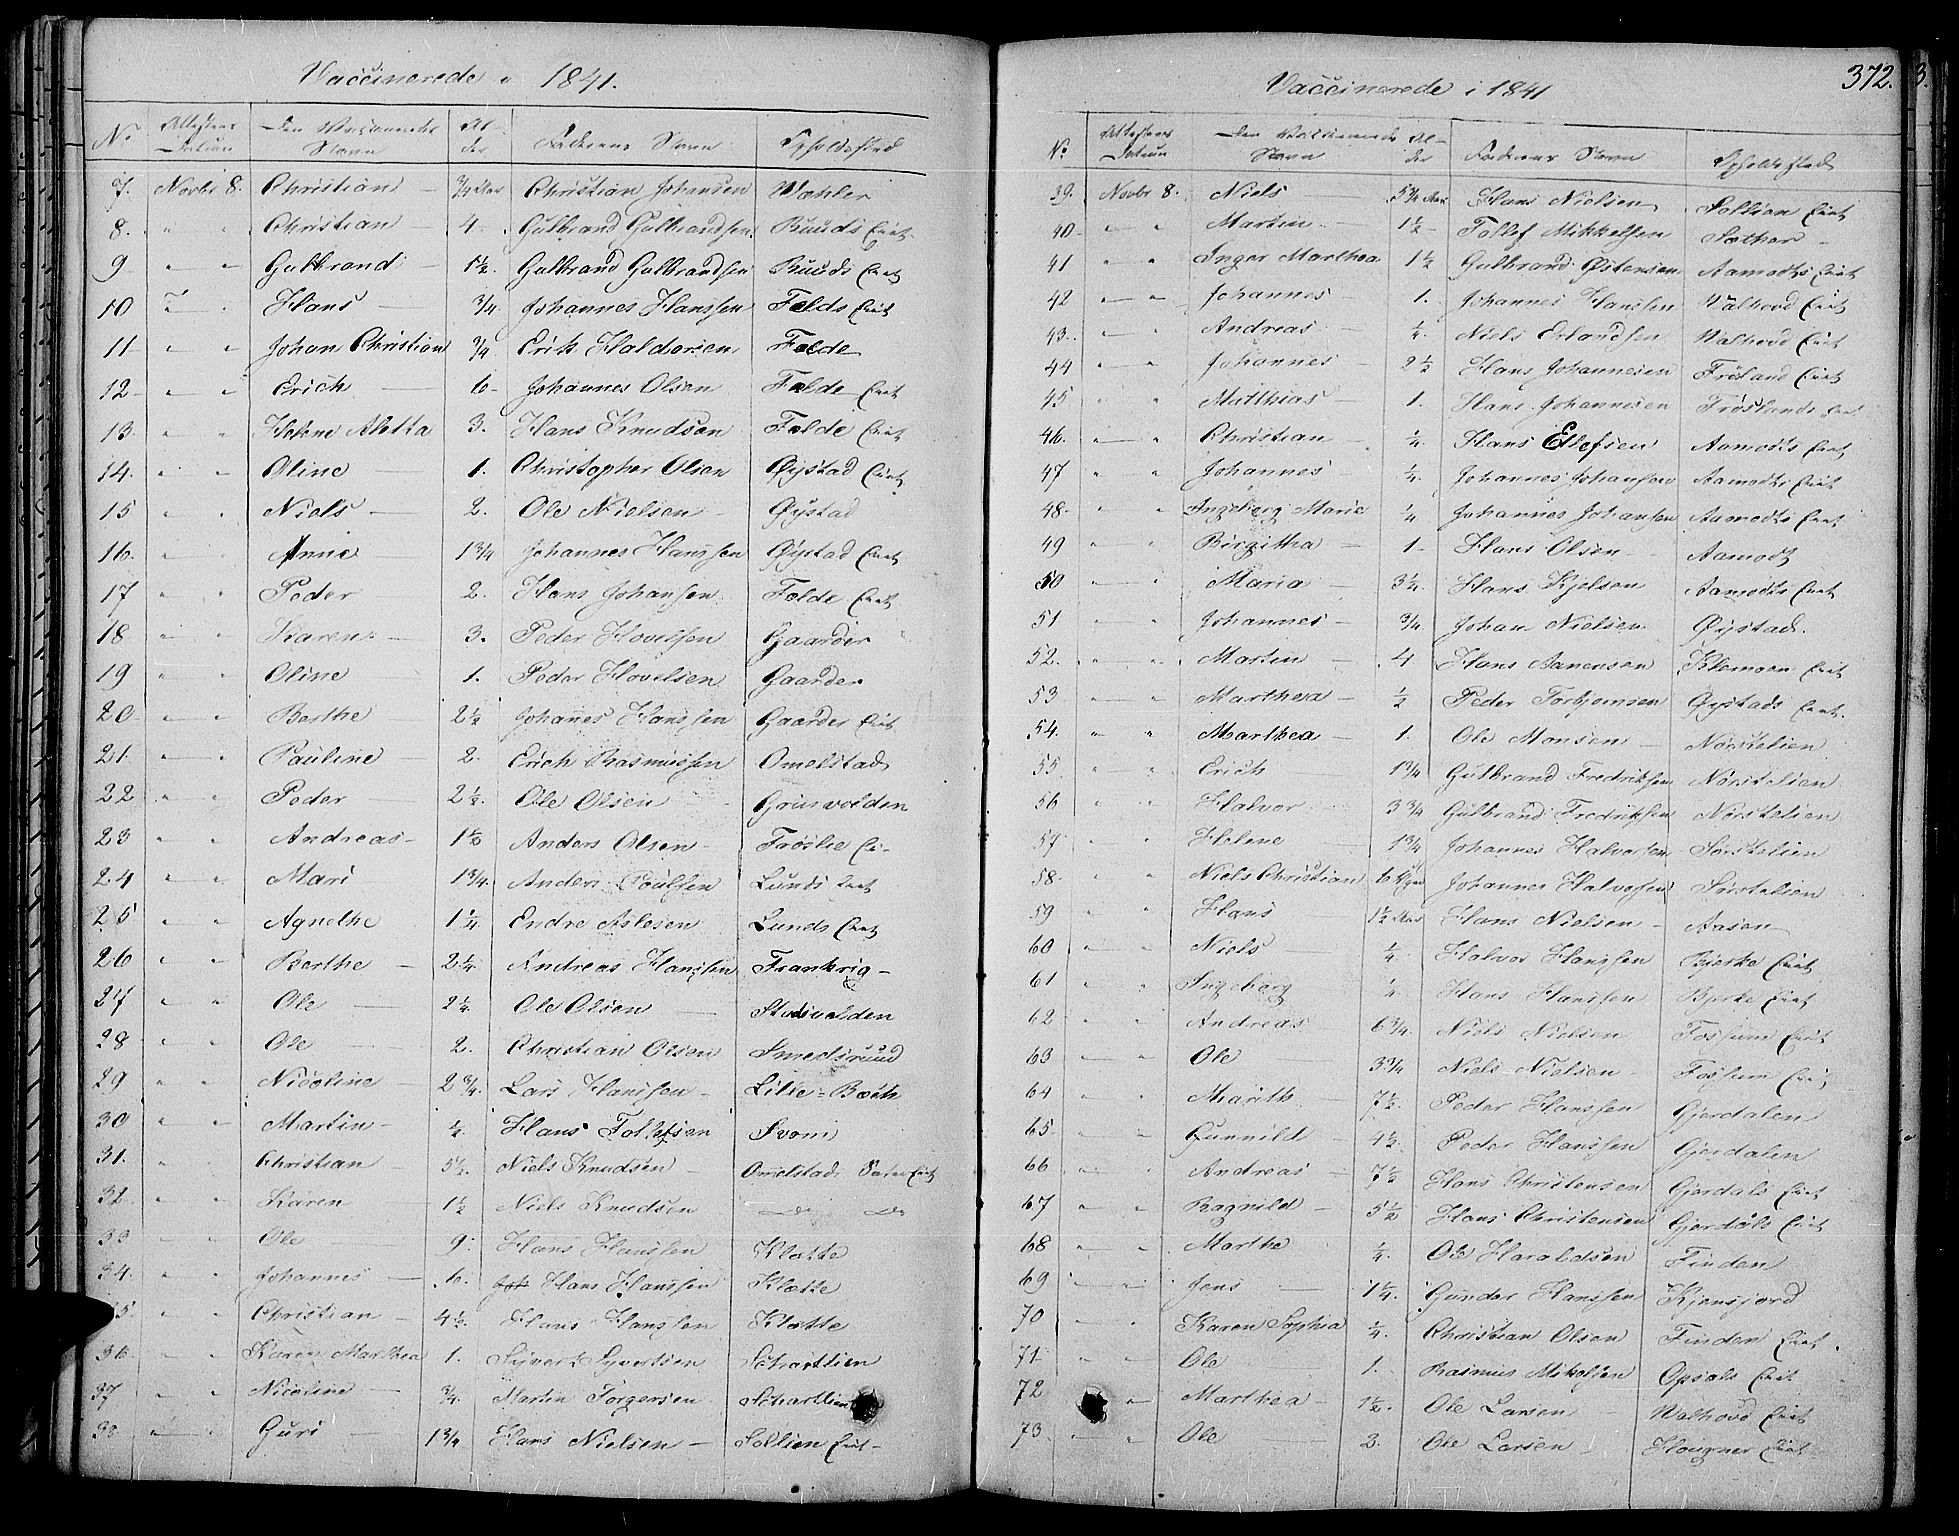 Vaccinerede i 1841.
No Attestens Datum Den Vaccineredes Navn Alder Faderens Navn Opholdssted
7. Novbr 8. Christian — 3/4 Aar Christian Johansen Wahler
8. " " Christian — 4 Gulbrand Gulbrandsen Ruuds Eiet
9 " " Gulbrand — 1½. Gulbrand Gulbrandsen Ruuds Eiet
10 " " Hans — 3/4. Johannes Hanssen Folds Eiet
11 " " Johan Christian 3/4 Erik Haldorsen Folde
12 " " Erich — 6 - Johannes Olsen Folde Eiet
13. " " Helene Aletta 3. Hans Knudsen Folde Eiet
14. " " Oline — 1. Christopher Olsen Øystad Eiet
15 " " Niels — 2. Ole Nielsen - Øystad
16. " " Anne 1 3/4 Johannes Hanssen Øystad Eiet
17 " " Peder 2. Hans Johansen Folde Eiet
18 " " Karen — 3. Peder Hovelsen Gaarder
19 " " Oline 1. Peder Hovelsen Gaarder
20 " " Berthe 2½ Johanes Hanssen Gaarder Eiet
21. " " Pauline — 2. Erich Rasmussen Omelstad
22 " " Peder — 2½. Ole Olsen Grinvolden
23 " " Andreas - 1½ Anders Olsen - Frøslie Ei-
24 " " Mari 1 3/4. Anders Poulsen Lunds Eiet
25 " " Agnethe 1¼ Endre Aslesen Lunds Eiet
26 " " Berthe — 2¼. Andreas Hanssen Frankrig -
27 " " Ole — 2¼. Ole Olsen — Stadsvolden
28 " " Ole — 2. Christian Olsen Smedsruud
29 " " Nicoline — 2 3/4. Lars Hanssen - Lille-Bæch
30 " " Martin - ½ Hans Tollefsen Sveni
31. " " Christian — 5½. Niels Knudsen - Omelstad Eiet
32 " " Karen — 1½ Niels Knudsen — do do
33 " " Ole 9. Hans Hanssen Klætte
34. " " Johannes — 6. Joh Hans Hanssen Klætte
35 " " Christian — 4½. Hans Hanssen Klætte
36. " " Karen Marthea 1. Syvert Syvertsen Schartlien
37 " " Nicoline — 3/4. Martin Torgersen Schartlien
38 " " Guri — 1 3/4 Hans Nielsen — Sollien Eiet -
Vaccinerede i 1841
372.
No Attestens Datum Den Vaccineredes Navn Alder Faderens Navn Opholdssted
39. Novbr 8. Niels — 5 3/4 Aar Hans Nielsen Sollien Eiet
40 " " Martin — 1½ - Tollef Mikkelsen Sæther -
41 " " Inger Marthea 1½ Gulbrand Østensen Aamodts Eiet
42 " " Johannes — 1. Johannes Hanssen Walhovd Eiet
43. " " Andreas — ¼. Niels Erlandsen Walhovd Eiet
44 " " Johannes — 2½ Hans Johannesen Frøsland Eiet
45 " " Matthias — 1. Hans Johannesen Frøslands Eiet
46. " " Christian — ¼ Hans Ellefsen Aamodts Eiet
47 " " Johannes — ¼. Johannes Johansen Aamodts Eiet
48. " " Ingeborg Marie ¼ Johannes Johansen Aamodts Eiet
49 " " Birgitha — 1. Hans Olsen — Aamodt
50 " " Maria — 3¼. Hans Kjelsen Aamodts Eiet
51 " " Johannes — 3/4. Johan Nielsen Øystad.
52. " " Martin — 4 Hans Aanensen Klemoen Eiet
53 " " Marthea — ½ Peder Torbjørnsen Øystads Eiet.
54. " " Marthea — 1. Ole Monsen — Nørstelien
55 " " Erich — 1 3/4 Gulbrand Fredriksen Nørstelien
56 " " Halvor — 3 3/4 Gulbrand Fredriksen Nørstelien
57 " " Helene — 1 3/4 Johannes Halvorsen Sørstelien
58. " " Niels Christian 6 Uger Johannes Halvorsen Sørstelien
59 " " Hans 1½ Aar Hans Nielsen - Aasen
60 " " Niels — ¼ Halvor Hanssen Bjerke Eiet
61 " " Ingeborg ¼ Hans Hanssen Bjerke Eiet
62 " " Andreas 6 3/4. Niels Nielsen Fossum Eiet
63 " " Ole 3 3/4 Niels Nielsen - Fossum Eiet
64 " " Marith — 7½. Peder Hanssen Gjerdalen
65. " " Gunnild — 4½. Peder Hanssen Gjerdalen
66 " " Andreas — 7½ Hans Christensen Gjerdals Eiet
67 " " Ragnild — 5½ Hans Christensen Gjerdals Eiet
68 " " Marthe ¼. Ole Haraldsen Finden
69 " " Jens — 1¼. Gunder Hanssen Kjensjord
70 " " Karen Sophia ¼. Christian Olsen Finden Eiet.
71 " " Ole 1. Rasmus Mikelsen Opsals Eiet
72 " " Marthea - 1½. Ole Larsen - Walhovd Eiet
73. " " Ole 2. Ole Larsen - Haugner Eiet